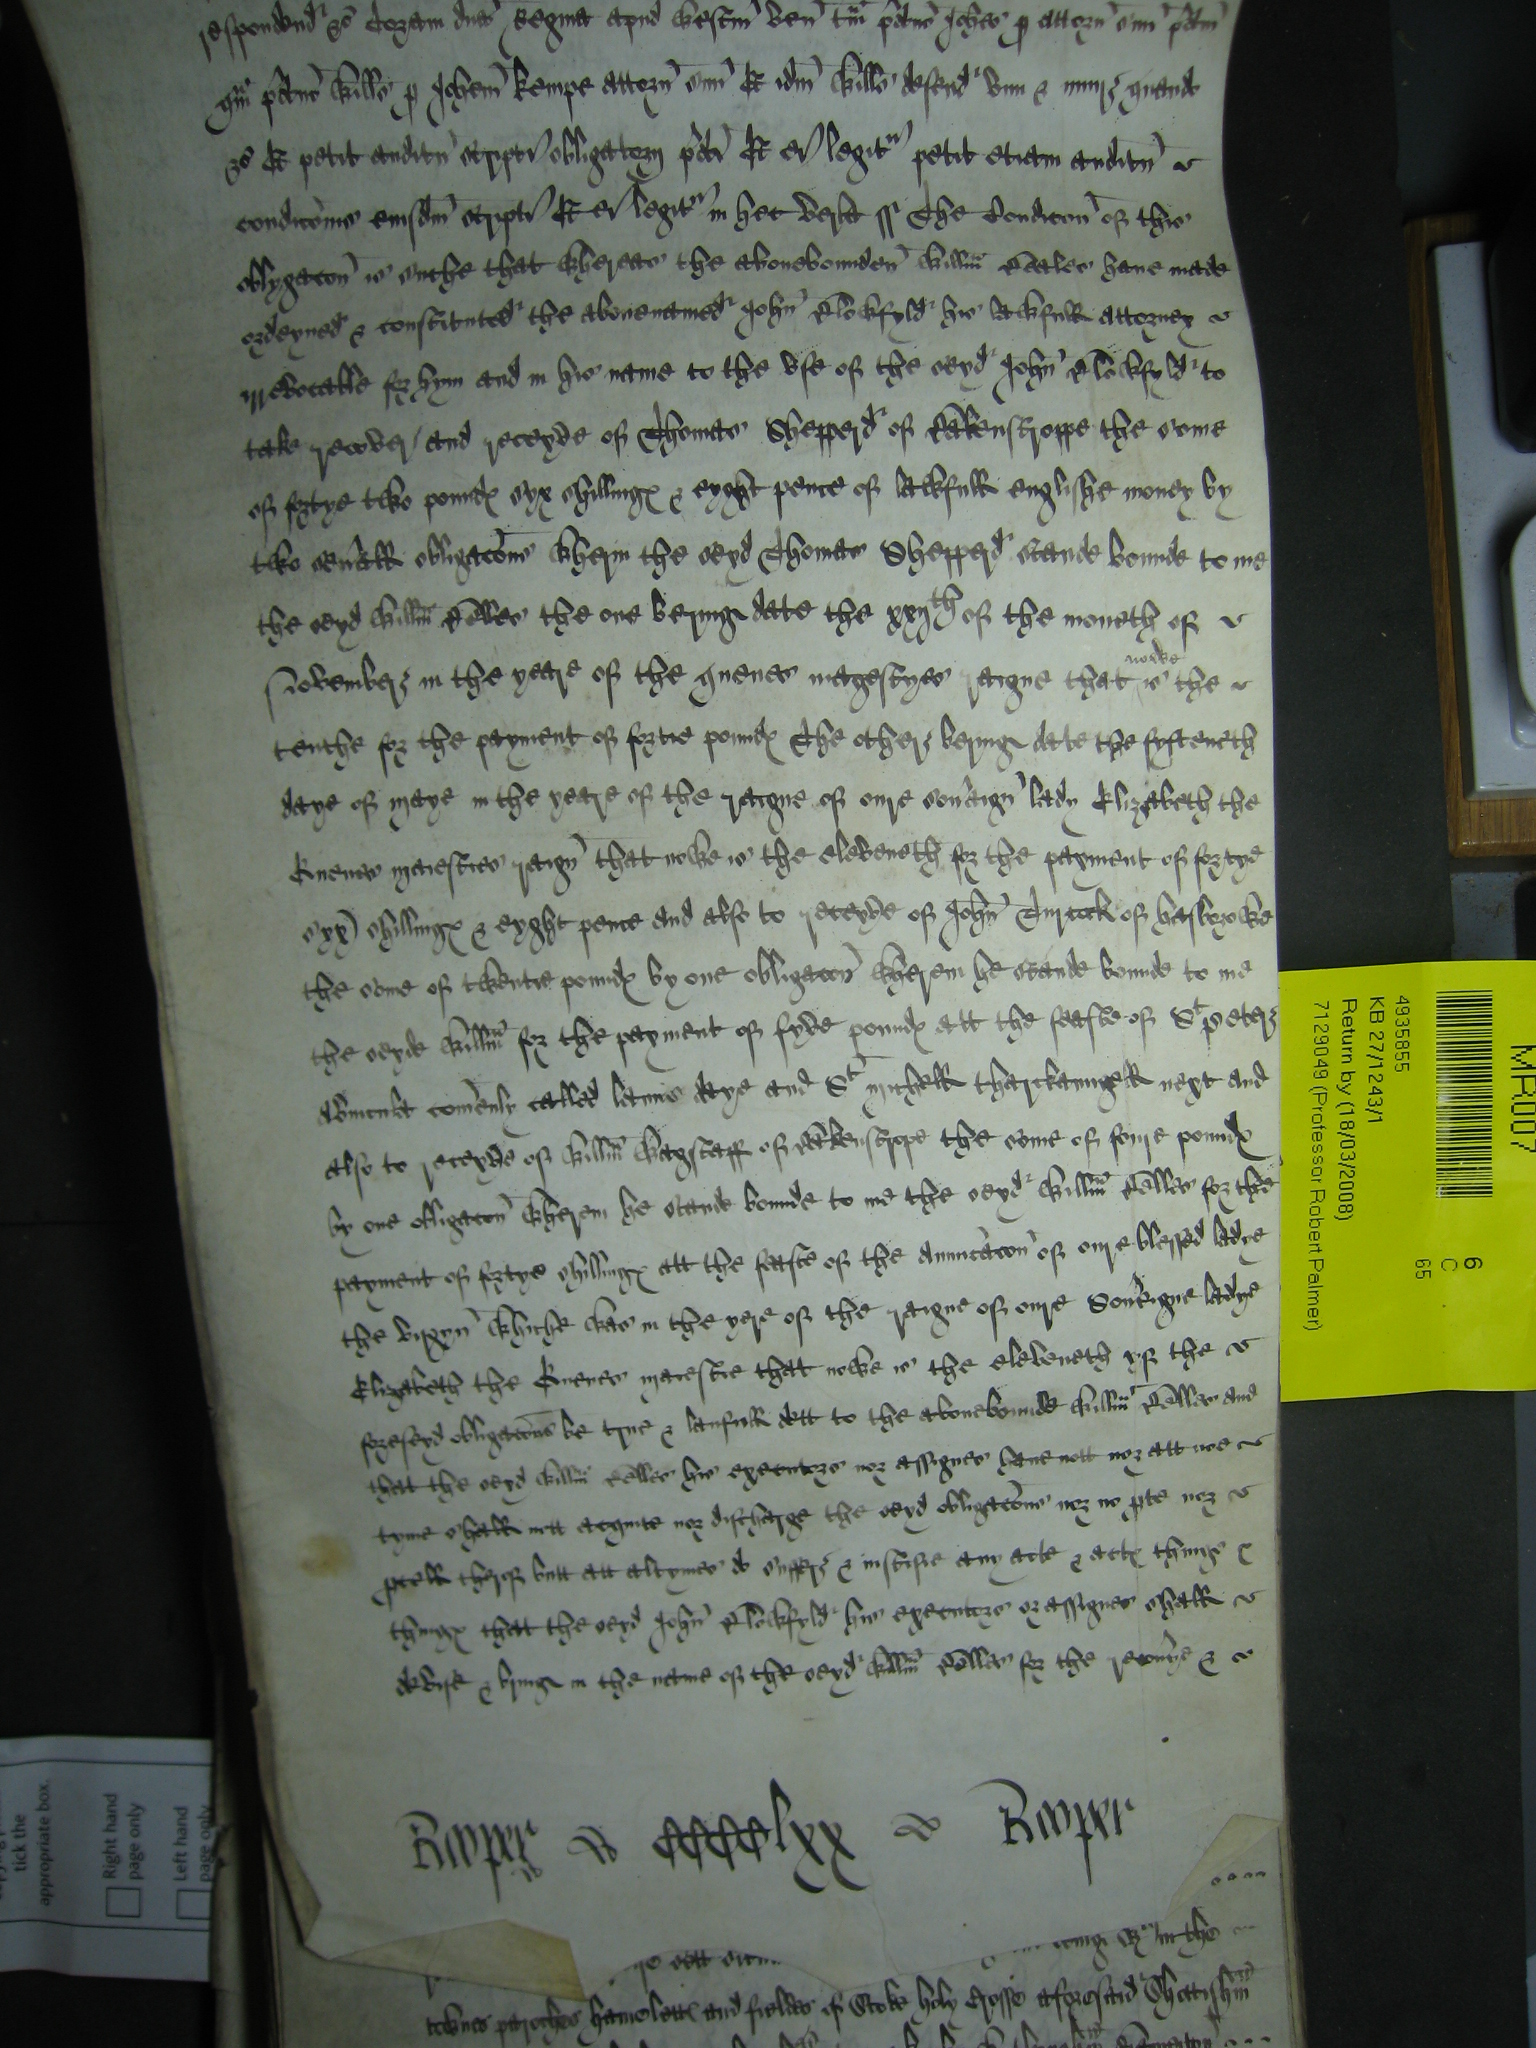 respondend &c Coram dna Regina apud Westm ven tam pdcus Johes p attorn suu pdcm
qm pdcus Willms p Johem Kempe attorn suu Et idm Willms defend vim & iniur quando
&c Et petit auditu scripti obligatorij pdci Et ei legit petit etiam auditu
condicoms eiusdm scripti Et ei legit in hec verba ss The Condicon of this
oblygacon is suche that whereas the abovebounden Willm have made
ordeyned & constituted the abovenamed John Clockfyld his lawfull attorney
irrevocable for hym and in his name to the use of the seyd John Clockfyld to
take recover and receyve of Thomas Shepperd of the some
of fortye two pounds syx shillings & eyght pence of lawfull englishe money by
two severall obligacons wherin the seyd Thomas Shepperd stande bounde to me
the seyd Willm the one beringe date the xxijth of the moneth of
November in the yeare of the quenes magestyes raigne that nowe is the
tenthe for the payment of fortie pounds The other beringe date the fyfteneth
daye of maye in the yeare of the raigne of oure soveraign lady Elizabeth the
Quenes majesties raign that nowe is the eleveneth for the payment of fortye
syx shillings & eyght pence and also to receyve of John of
the some of twentie pounds by one obligacon wherein he stande bounde to me
the seyde Willm for the payment of fyve pounds att the feaste of St Peter
Advincula comenly called lamas daye and St michell tharkaungell next and
also to receyve of Willm Wagstaff of the some of foure pounds
by one obligacon wherein he stande bounde to me the seyd Willm for the
payment of fortye shillings att the feaste of the Anunciacon of oure blessed ladye
the virgyn whiche was in the yere of the raigne of oure Soveraigne ladye
Elizabeth the Quenes majestie that nowe is the eleveneth yf the
foreseyd obligacons be true & laufull dett to the abovebounde Willm and
that the seyd Willm his executors nor assignes have nott nor att noe
tyme shall nott acquite nor discharge the seyd obligacons nor no pte nor
pcell therof butt att altymes do suffer & justifie any acte & acts thinge &
things that the seyd John Clockfyld his executors or assignes shall
devise & bringe in the name of the seyd Willm for the recoverye &
Rooper CCCClxx Rooper
townes paroches hamolette and fieldes of Stoke holy Crosse aforesaid
MR007
4935855
KB 27/1243/1
Return by (18/03/2008)
7129049 (Professor Robert Palmer)
6
C
65
tick the
appropriate box.
Right hand
page only
Left hand
page only